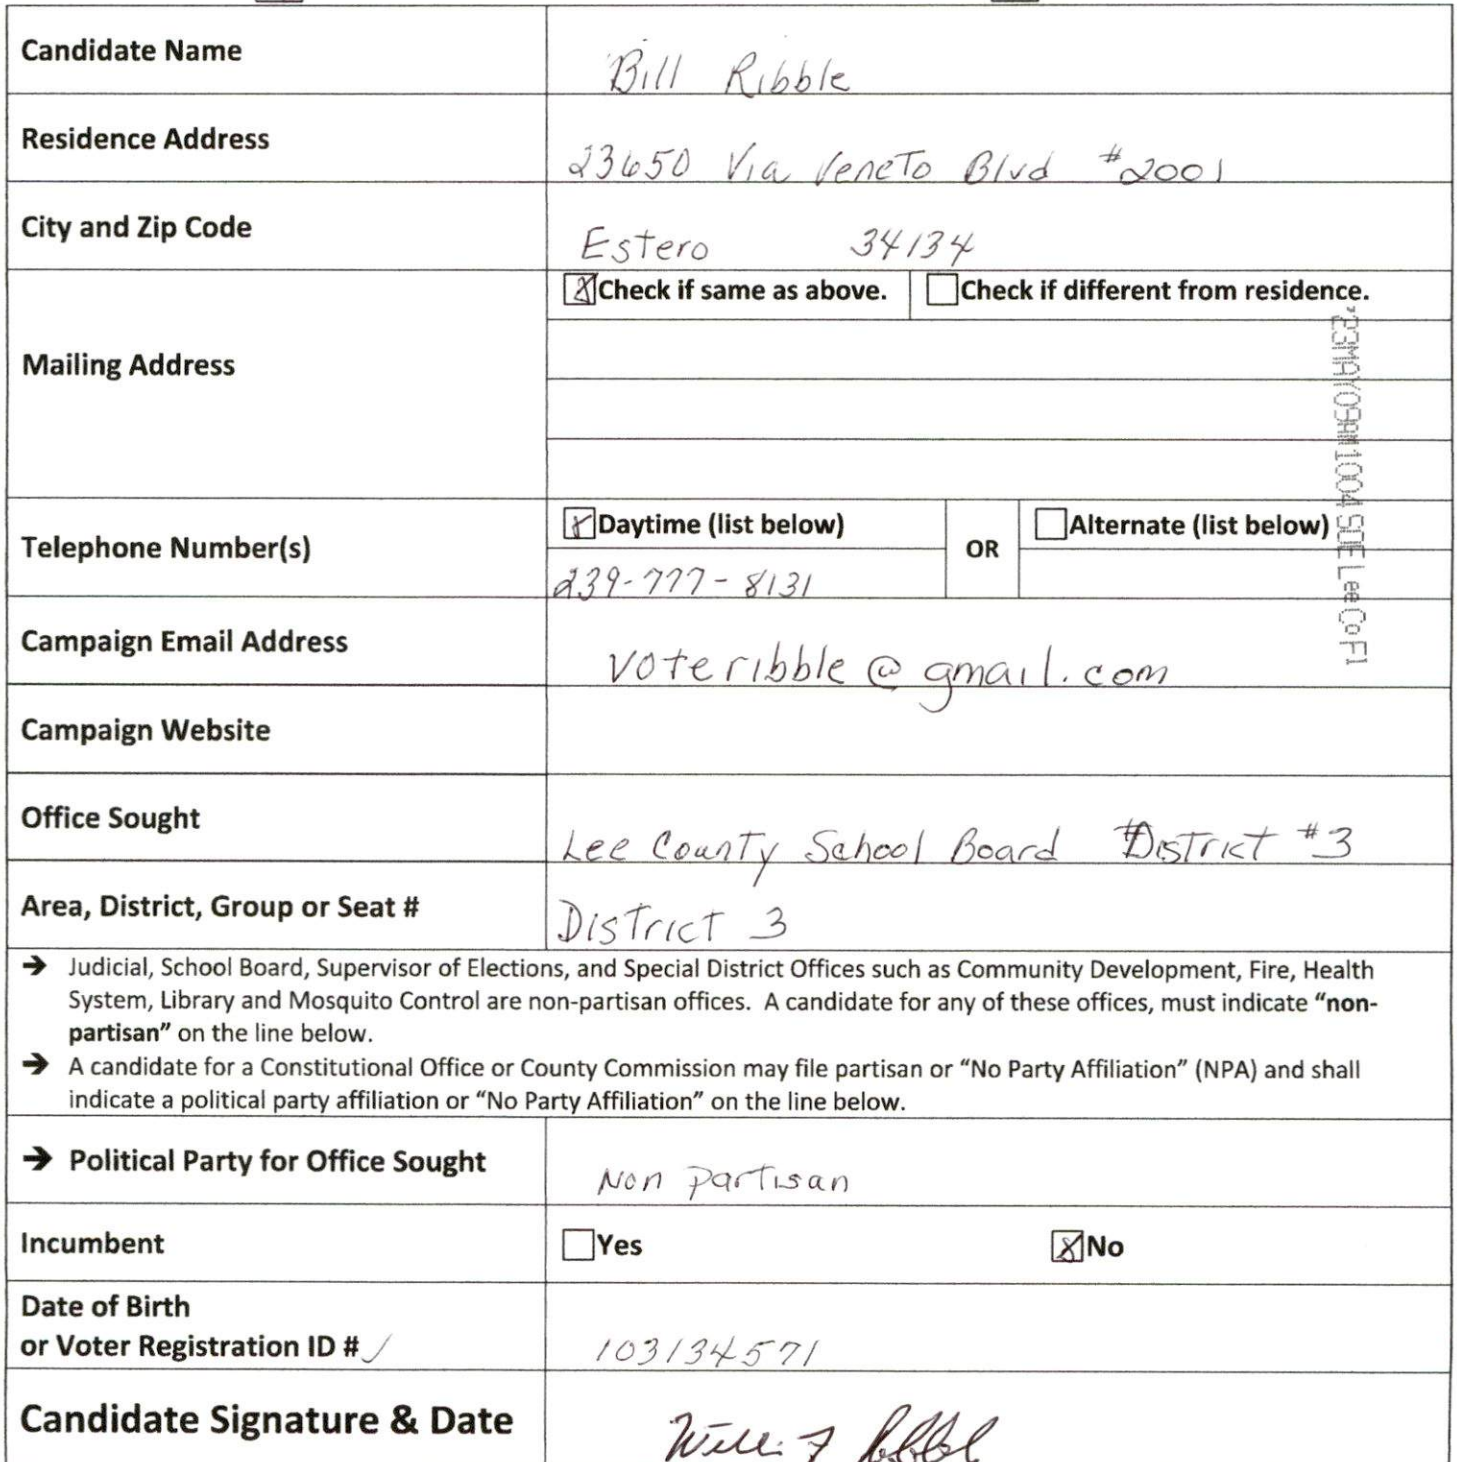 Candidate Name Bill Ribble
Residence Address 23650 Via Veneto Blvd #2001
City and Zip Code Estero 34134
Check if same as above. Check if different from residence.
Mailing Address
'23MAY09AM1004 SOE Lee Co Fl
Daytime (list below) OR Alternate (list below)
Telephone Number(s)
239-777-8131
Campaign Email Address voteribble@gmail.com
Campaign Website
Office Sought Lee County School Board District #3
Area, District, Group or Seat # District 3
→ Judicial, School Board, Supervisor of Elections, and Special District Offices such as Community Development, Fire, Health
System, Library and Mosquito Control are non-partisan offices. A candidate for any of these offices, must indicate “non-
partisan” on the line below.
→ A candidate for a Constitutional Office or County Commission may file partisan or “No Party Affiliation” (NPA) and shall
indicate a political party affiliation or “No Party Affiliation” on the line below.
→ Political Party for Office Sought Non Partisan
Incumbent Yes No
Date of Birth
or Voter Registration ID # 103134571
Candidate Signature & Date